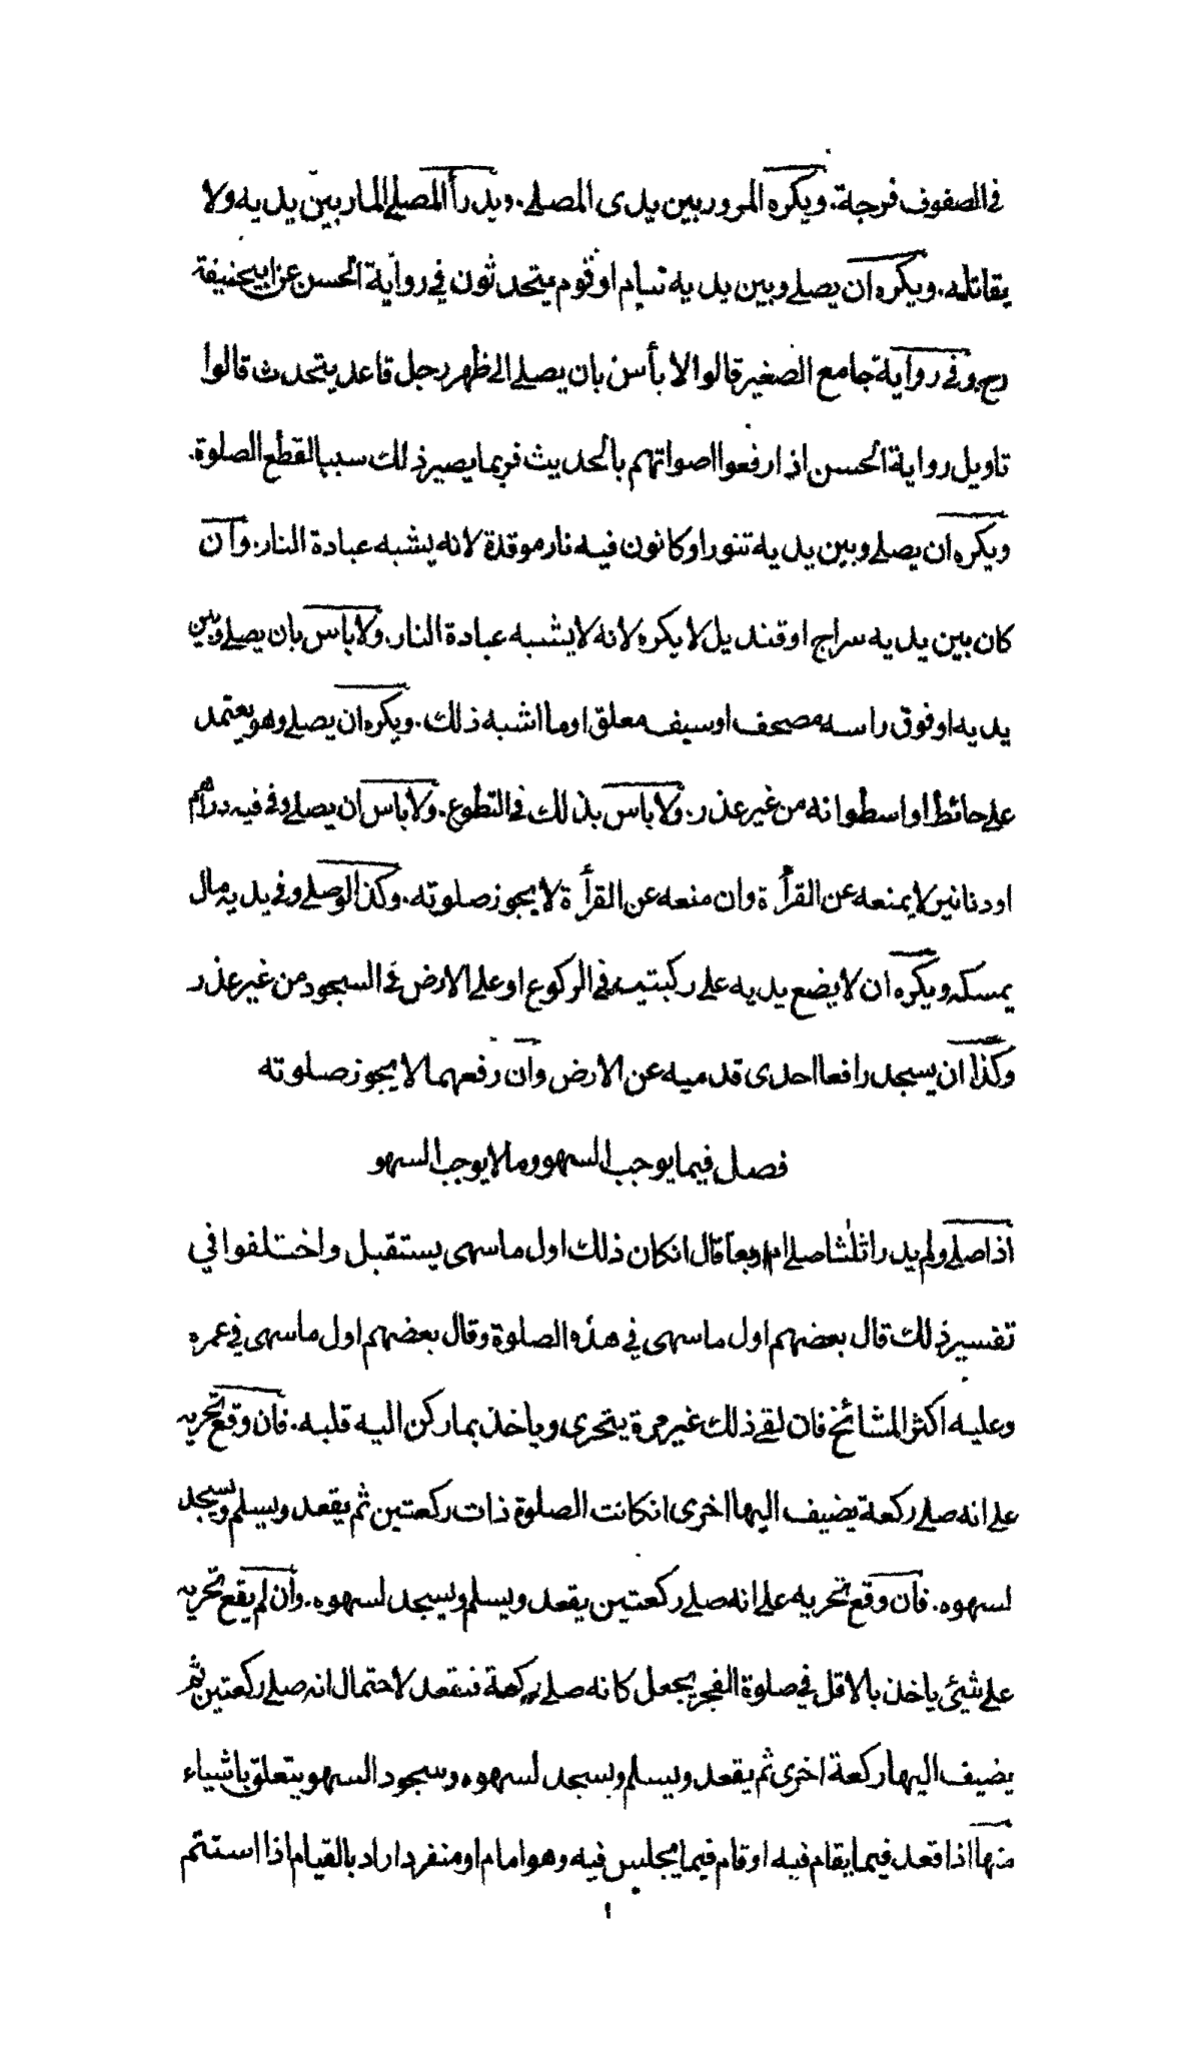 في الصفوف فرجة. ويكره المرور بين يدى المصلے. ويدرأ المصلے المار بين يديه ولا
يقاتله. ويكره ان يصلے وبين يديه نيام او قوم يتحدثون في رواية الحسن عن ابيحنيفة
رح وفى رواية جامع الصغير قالوا لا بأس بان يصلے الى ظهر رجل قاعد يتحدث قالوا
تاويل رواية الحسن اذا رفعوا اصواتهم بالحديث فربما يصير ذلك سببا لقطع الصلوة.
ويكره ان يصلے وبين يديه تنور او كانون فيه نار موقدة لانه يشبه عبادة النار. وان
كان بين يديه سراج او قنديل لا يكره لانه لا يشبه عبادة النار. ولا باس بان يصلے وبين
يديه او فوق راسه مصحف او سيف معلق او ما اشبه ذلك. ويكره ان يصلے وهو يعتمد
علے حائط او اسطوانه من غير عذر. ولا باس بذلك في التطوع. ولا باس ان يصلے وفى فيه دراهم
او دنانير لا يمنعه عن القرأة وان منعه عن القرأة لا يجوز صلوته. وكذا لو صلے وفى يديه مال
يمسكه ويكره ان لا يضع يديه علے ركبتيه في الركوع او على الارض في السجود من غير عذر
وكذا ان يسجد رافعا احدى قدميه عن الارض وان رفعهما لا يجوز صلوته
فصل فيما يوجب السهو وما لا يوجب السهو
اذا صلے ولم يدر اثلثا صلے ام اربعا قال انكان ذلك اول ما سهى يستقبل واختلفوا في
تفسير ذلك قال بعضهم اول ما سهى في هذه الصلوة وقال بعضهم اول ما سهى في عمره
وعليه اكثر المشائخ فان لقے ذلك غير مرة يتحرى وياخذ بما ركن اليه قلبه. فان وقع تحريه
علے انه صلے ركعة يضيف اليها اخرى انكانت الصلوة ذات ركعتين ثم يقعد ويسلم ويسجد
لسهوه. فان وقع تحريه علے انه صلے ركعتين يقعد ويسلم ويسجد لسهوه. وان لم يقع تحريه
علے شيئ ياخذ بالاقل في صلوة الفجر يجعل كانه صلے ركعة فيقعد لاحتمال انه صلے ركعتين ثم
يضيف اليها ركعة اخرى ثم يقعد ويسلم ويسجد لسهوه وسجود السهو يتعلق باشياء
منها اذا قعد فيما يقام فيه او قام فيما يجلس فيه وهو امام او منفرد اراد بالقيام اذا استتم